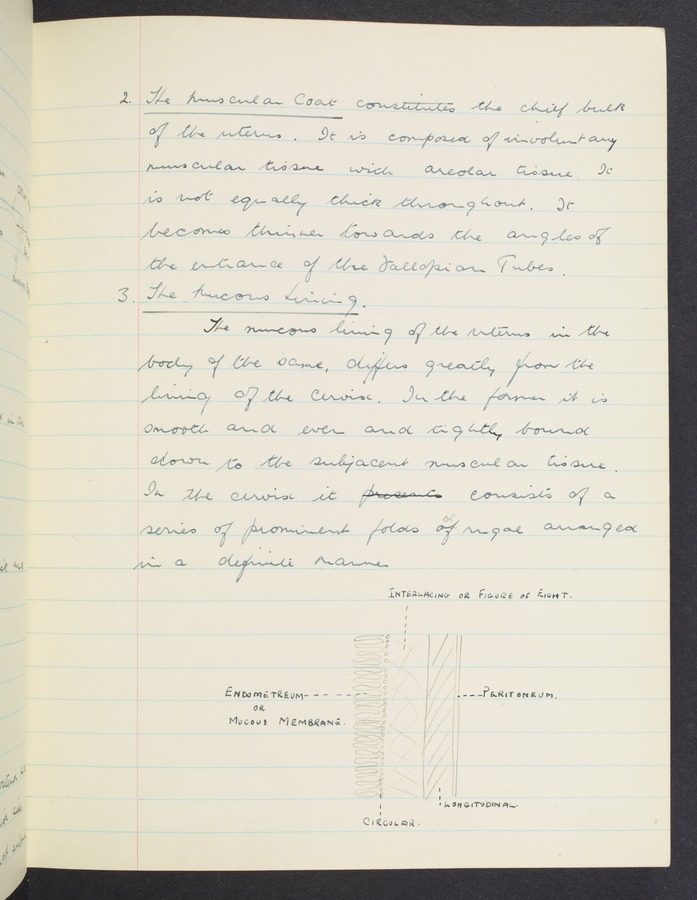 2. The Muscular Coat constitutes the chief bulk
of the uterus. It is composed of involuntary
muscular tissue with areolar tissue. It
is not equally thick throughout. It
becomes thinner towards the angles of
the entrance of the Fallopian Tubes.
3. The Mucous Lining.
The mucous lining of the uterus in the
body of the same, differs greatly from the
lining of the cervix. In the former it is
smooth and even and tightly bound
down to the subjacent muscular tissue.
In the cervix it presents consists of a
series of prominent folds of or rugae arranged
in a definite manner
INTERLACING OR FIGURE OF EIGHT.
ENDOMETREUM
OR
MUCOUS MEMBRANE.
PERITONEUM.
LONGITUDINAL.
CIRCULAR.